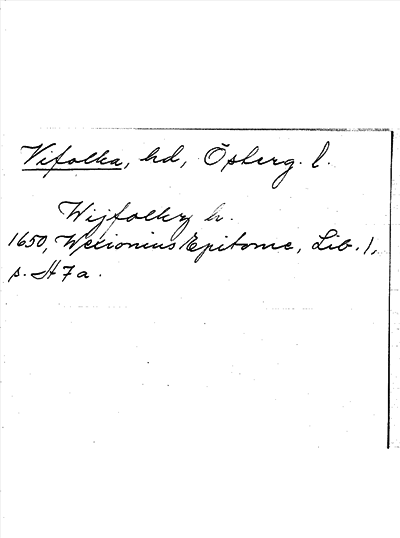 Vifolka, hd, Östergötl.
Wijfolkz h.
1650, Wexionius Epitome, Lib. 1,
s. H 7 a.